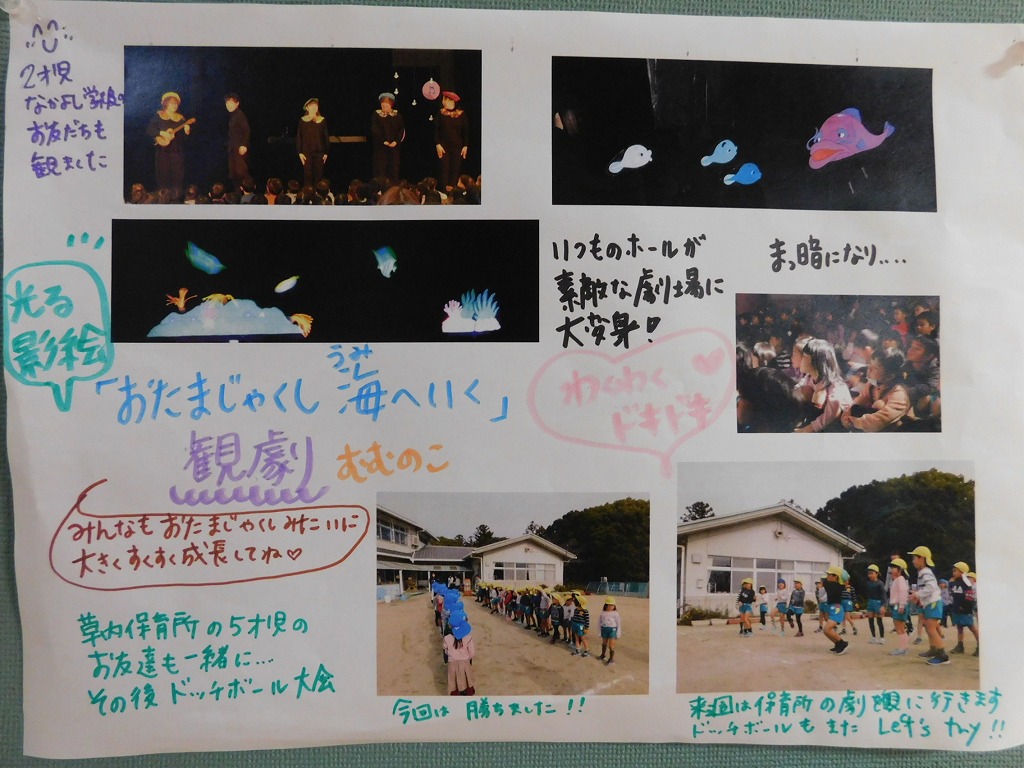 2才児
なかよし学級の
お友だちも
観ました
光る
影絵
いつものホールが
素敵な劇場に
大変身!
まっ暗になり....
わくわく
ドキドキ
うみ
「おたまじゃくし 海へいく」
観劇 むむのこ
みんなもおたまじゃくしみたいに
大きくすくすく成長してね♡
草内保育所の5才児の
お友達も一緒に...
その後 ドッチボール大会
今回は 勝ちました!!
来週は保育所の劇を観に行きます
ドッチボールも また Let's try!!